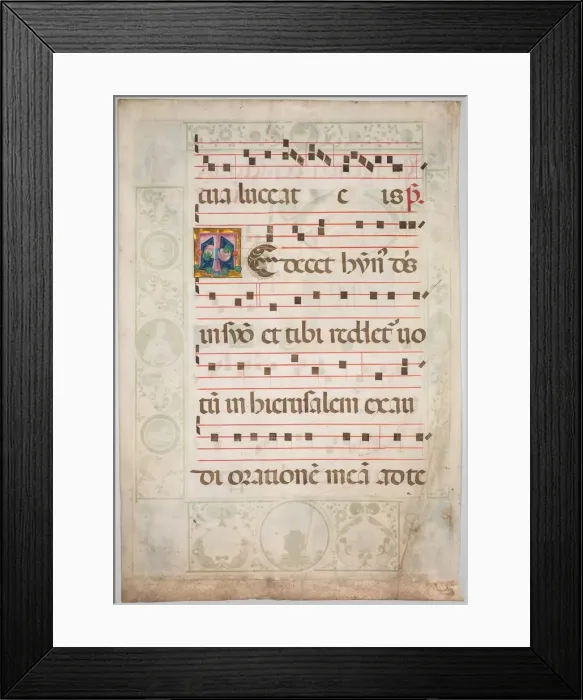 tua luceat e is p̄s.
TE decet hȳn̄ d̄s
in syō et tibi reddet᷑ uo
tū in hierusalem exau
di orationē meā ad te